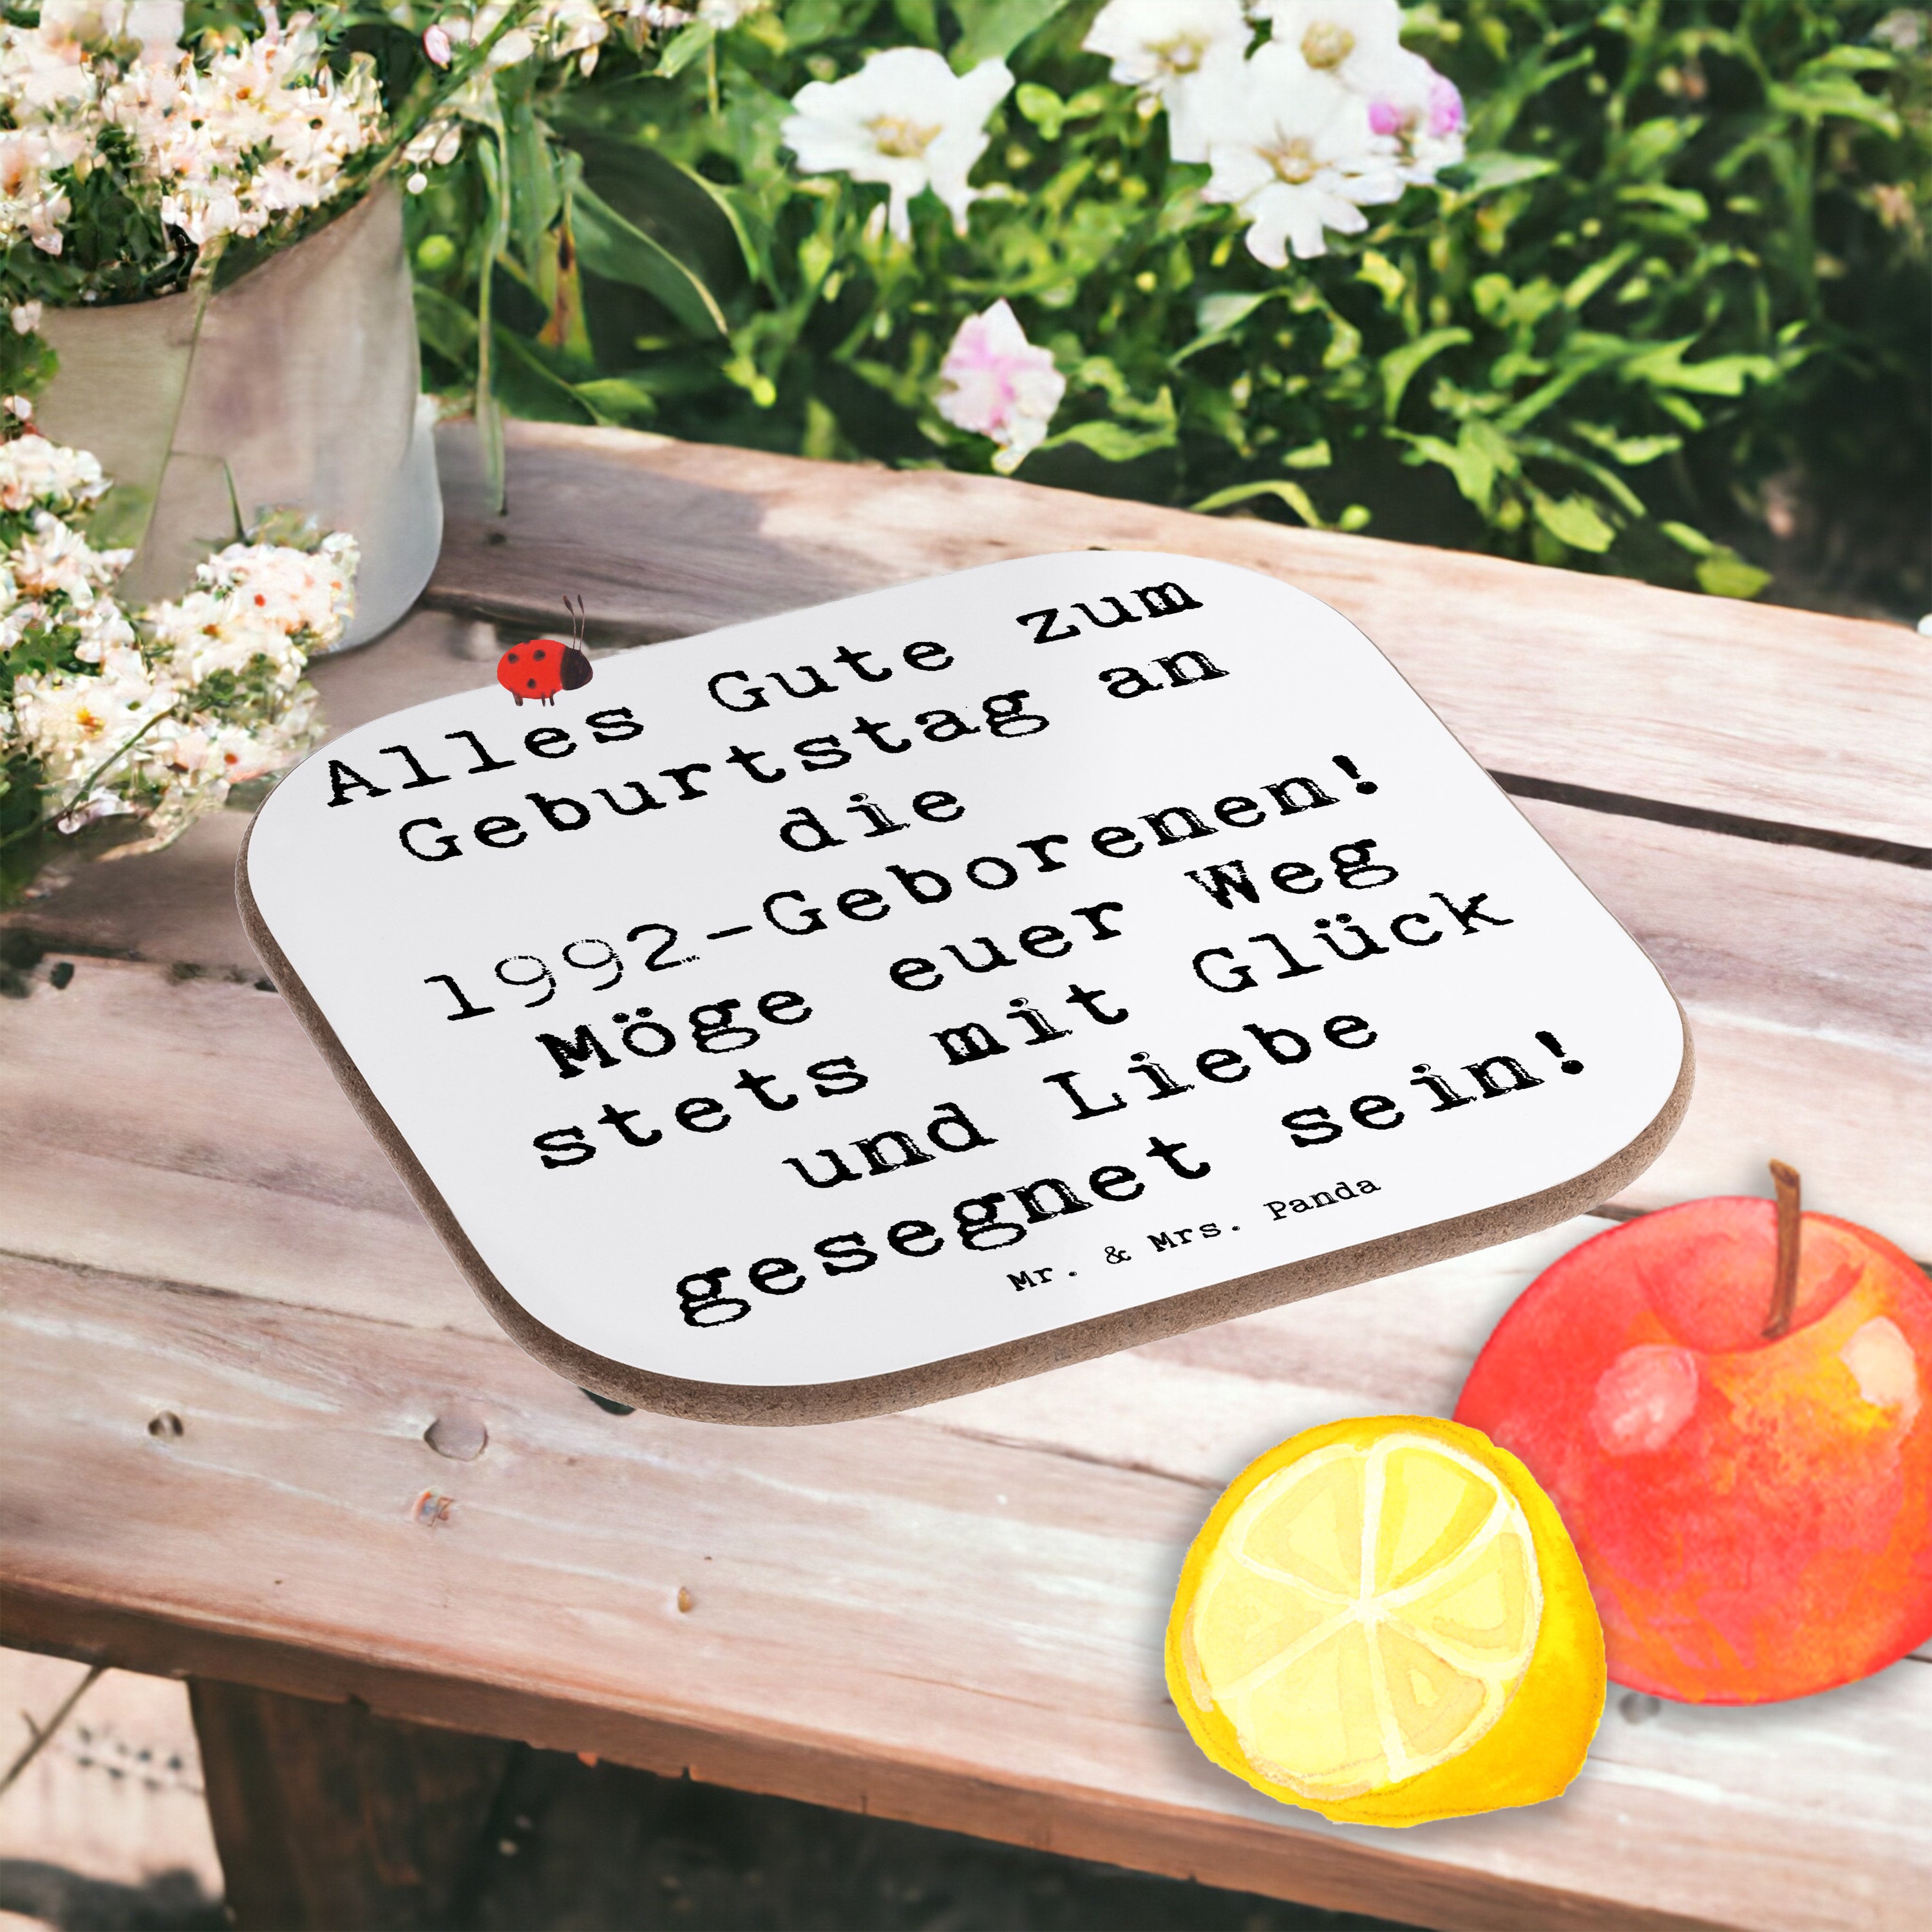 Alles Gute zum
Geburtstag an
die
1992-Geborenen!
Möge euer Weg
stets mit Glück
und Liebe
gesegnet sein!
Mr. & Mrs. Panda